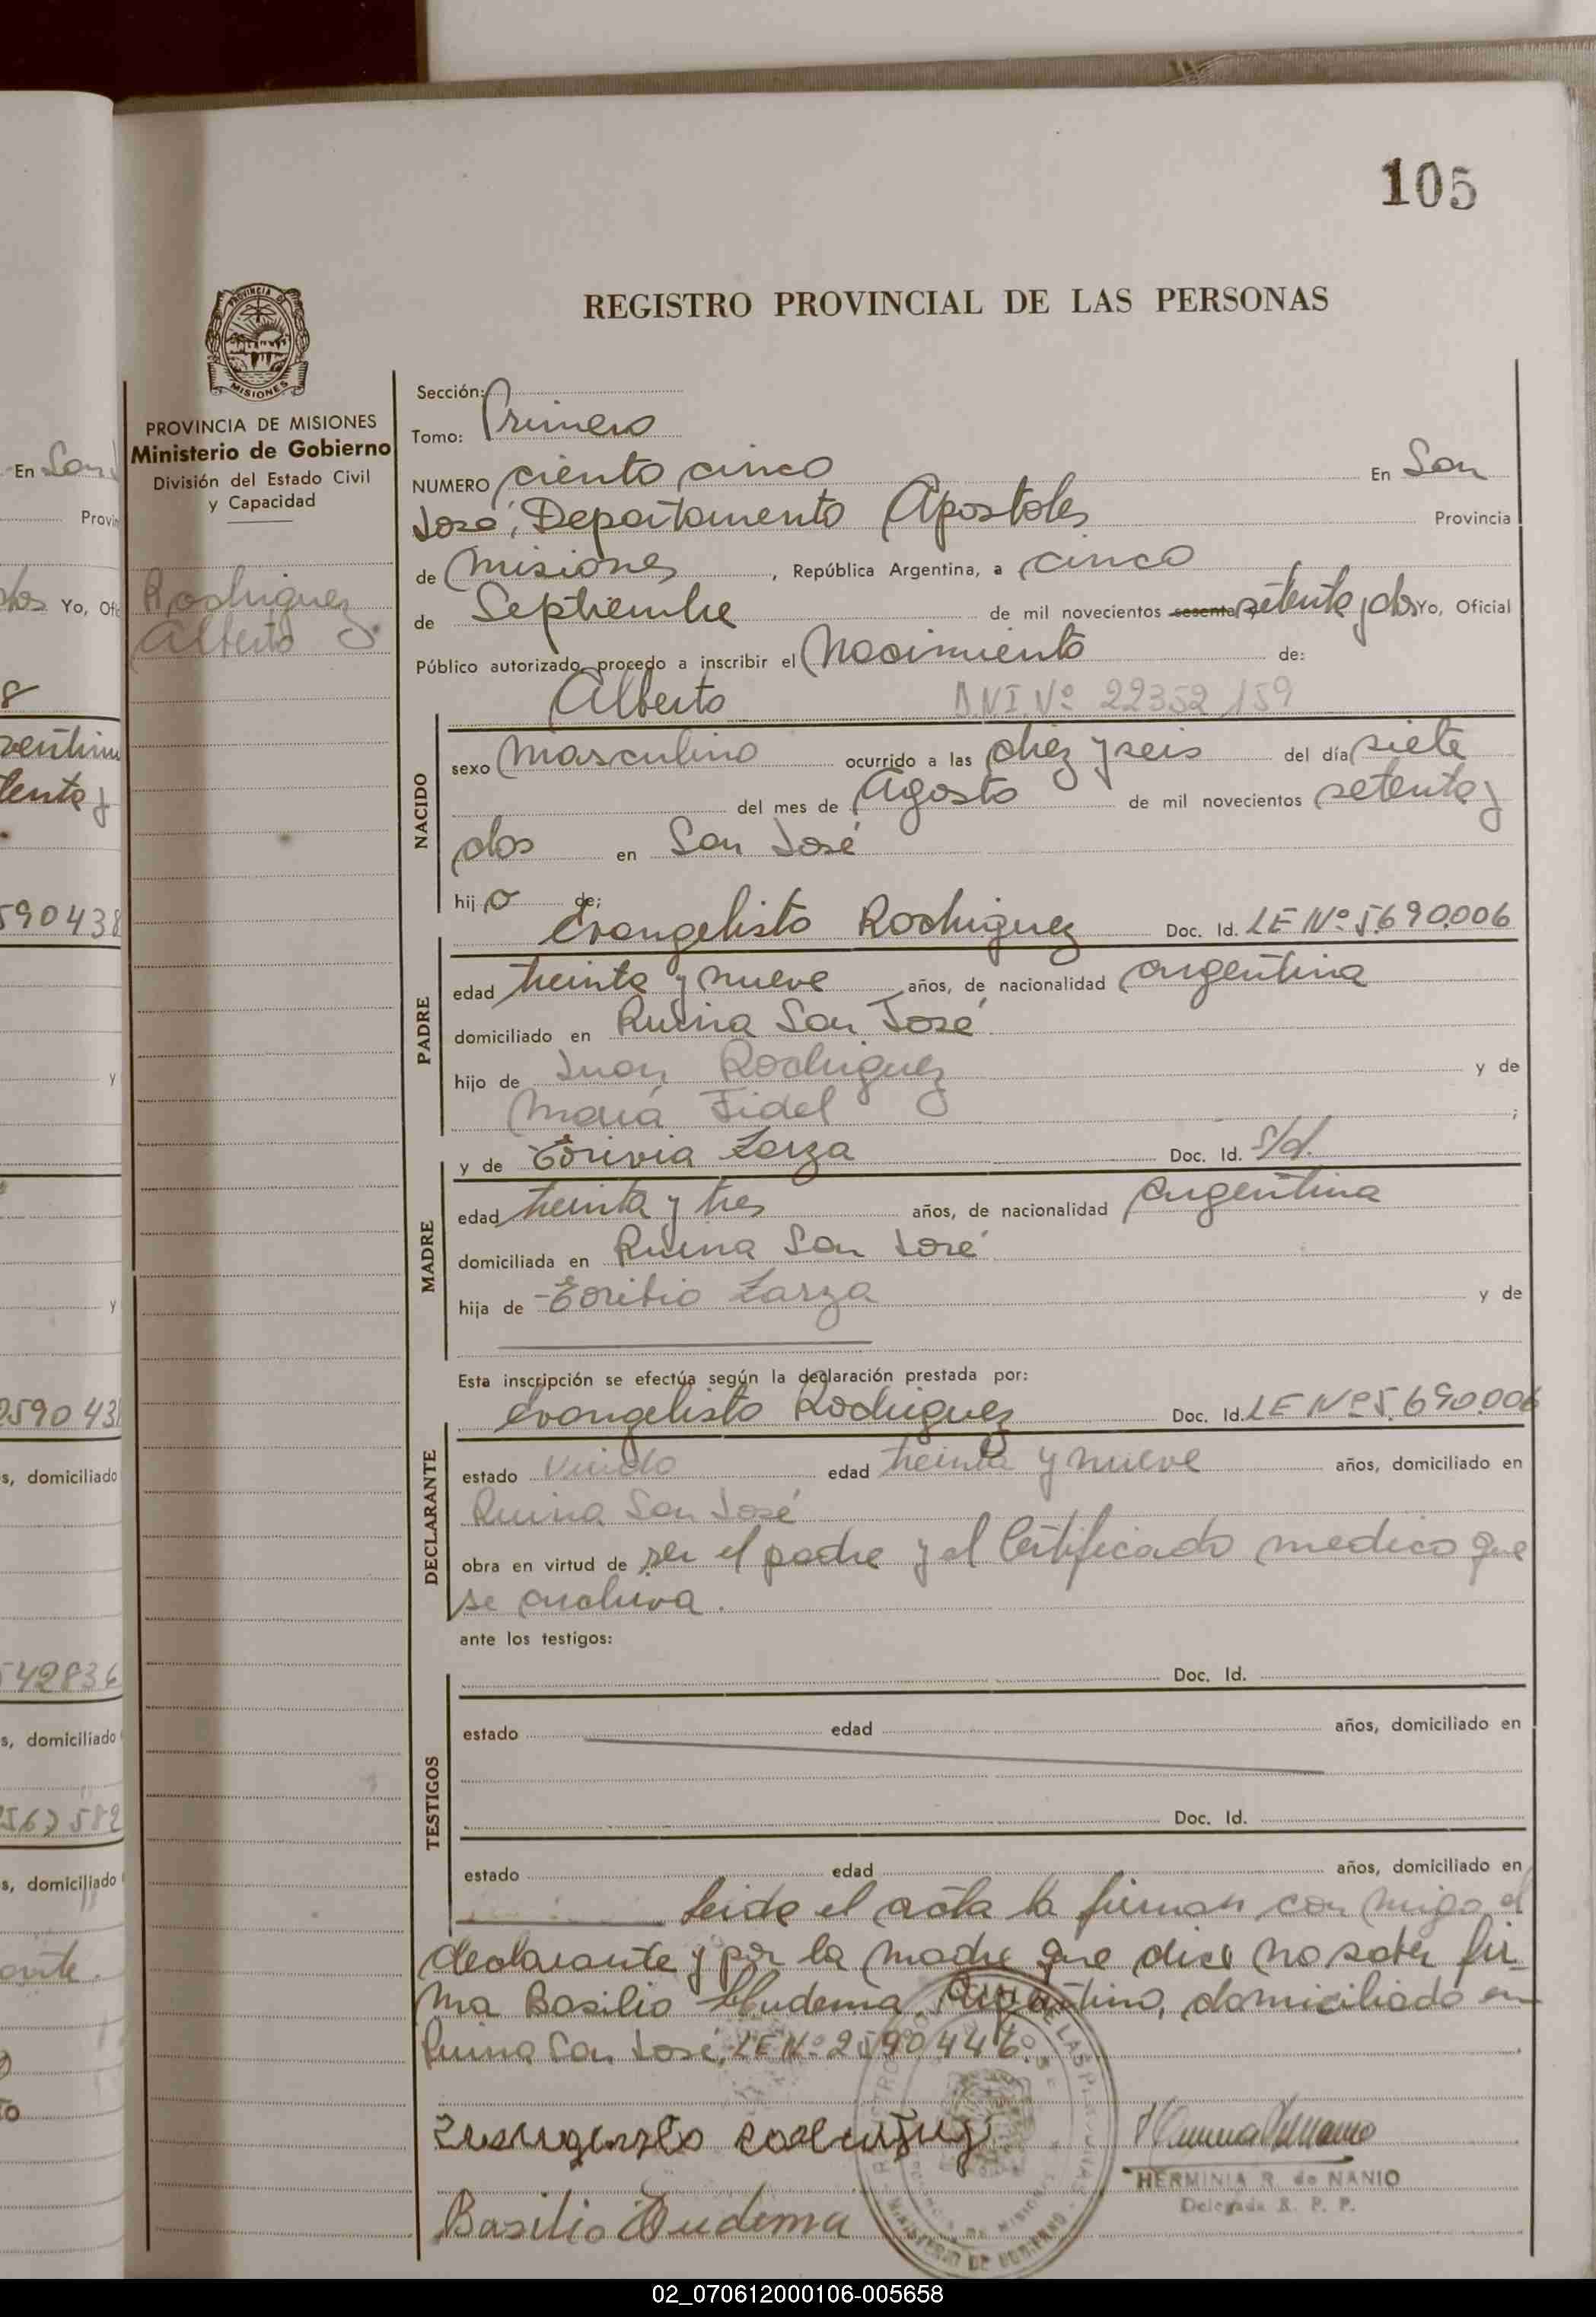 105
REGISTRO PROVINCIAL DE LAS PERSONAS
PROVINCIA DE MISIONES
Ministerio de Gobierno
División del Estado Civil
y Capacidad
Rodriguez
Alberto
Sección:
Tomo: Primero
NUMERO ciento cinco En San
José, Departamento Apostoles Provincia
de Misiones, República Argentina, a cinco
de Septiembre de mil novecientos sesenta setenta y dos Yo, Oficial
Público autorizado, procedo a inscribir el Nacimiento de:
Alberto D.N.I. Nº 22352159
NACIDO
sexo Masculino ocurrido a las diez y seis del día siete
del mes de Agosto de mil novecientos setenta y
dos en San José
hij o de:
Evangelisto Rodriguez Doc. Id. LE Nº 5.690.006
PADRE
edad treinta y nueve años, de nacionalidad argentina
domiciliado en Ruina San José
hijo de Juan Rodriguez y de
María Fidel;
y de Zarza Doc. Id. s/d.
MADRE
edad treinta y tres años, de nacionalidad argentina
domiciliada en Ruina San José
hija de Zarza y de
Esta inscripción se efectúa según la declaración prestada por:
Evangelisto Rodriguez Doc. Id. LE Nº 5.690.006
DECLARANTE
estado Viudo edad treinta y nueve años, domiciliado en
Ruina San José
obra en virtud de ser el padre y el Certificado medico que
se archiva.
ante los testigos:
TESTIGOS
Doc. Id.
estado edad años, domiciliado en
Doc. Id.
estado edad años, domiciliado en
leida el acta la firman con migo el
declarante y por la madre que dice no saber fir
ma Basilio Argentino, domiciliado en
Ruina San José, LE Nº 2590446.
Basilio
HERMINIA R. de NANIO
Delegada R. P. P.
MINISTERIO DE GOBIERNO
02_070612000106-005658